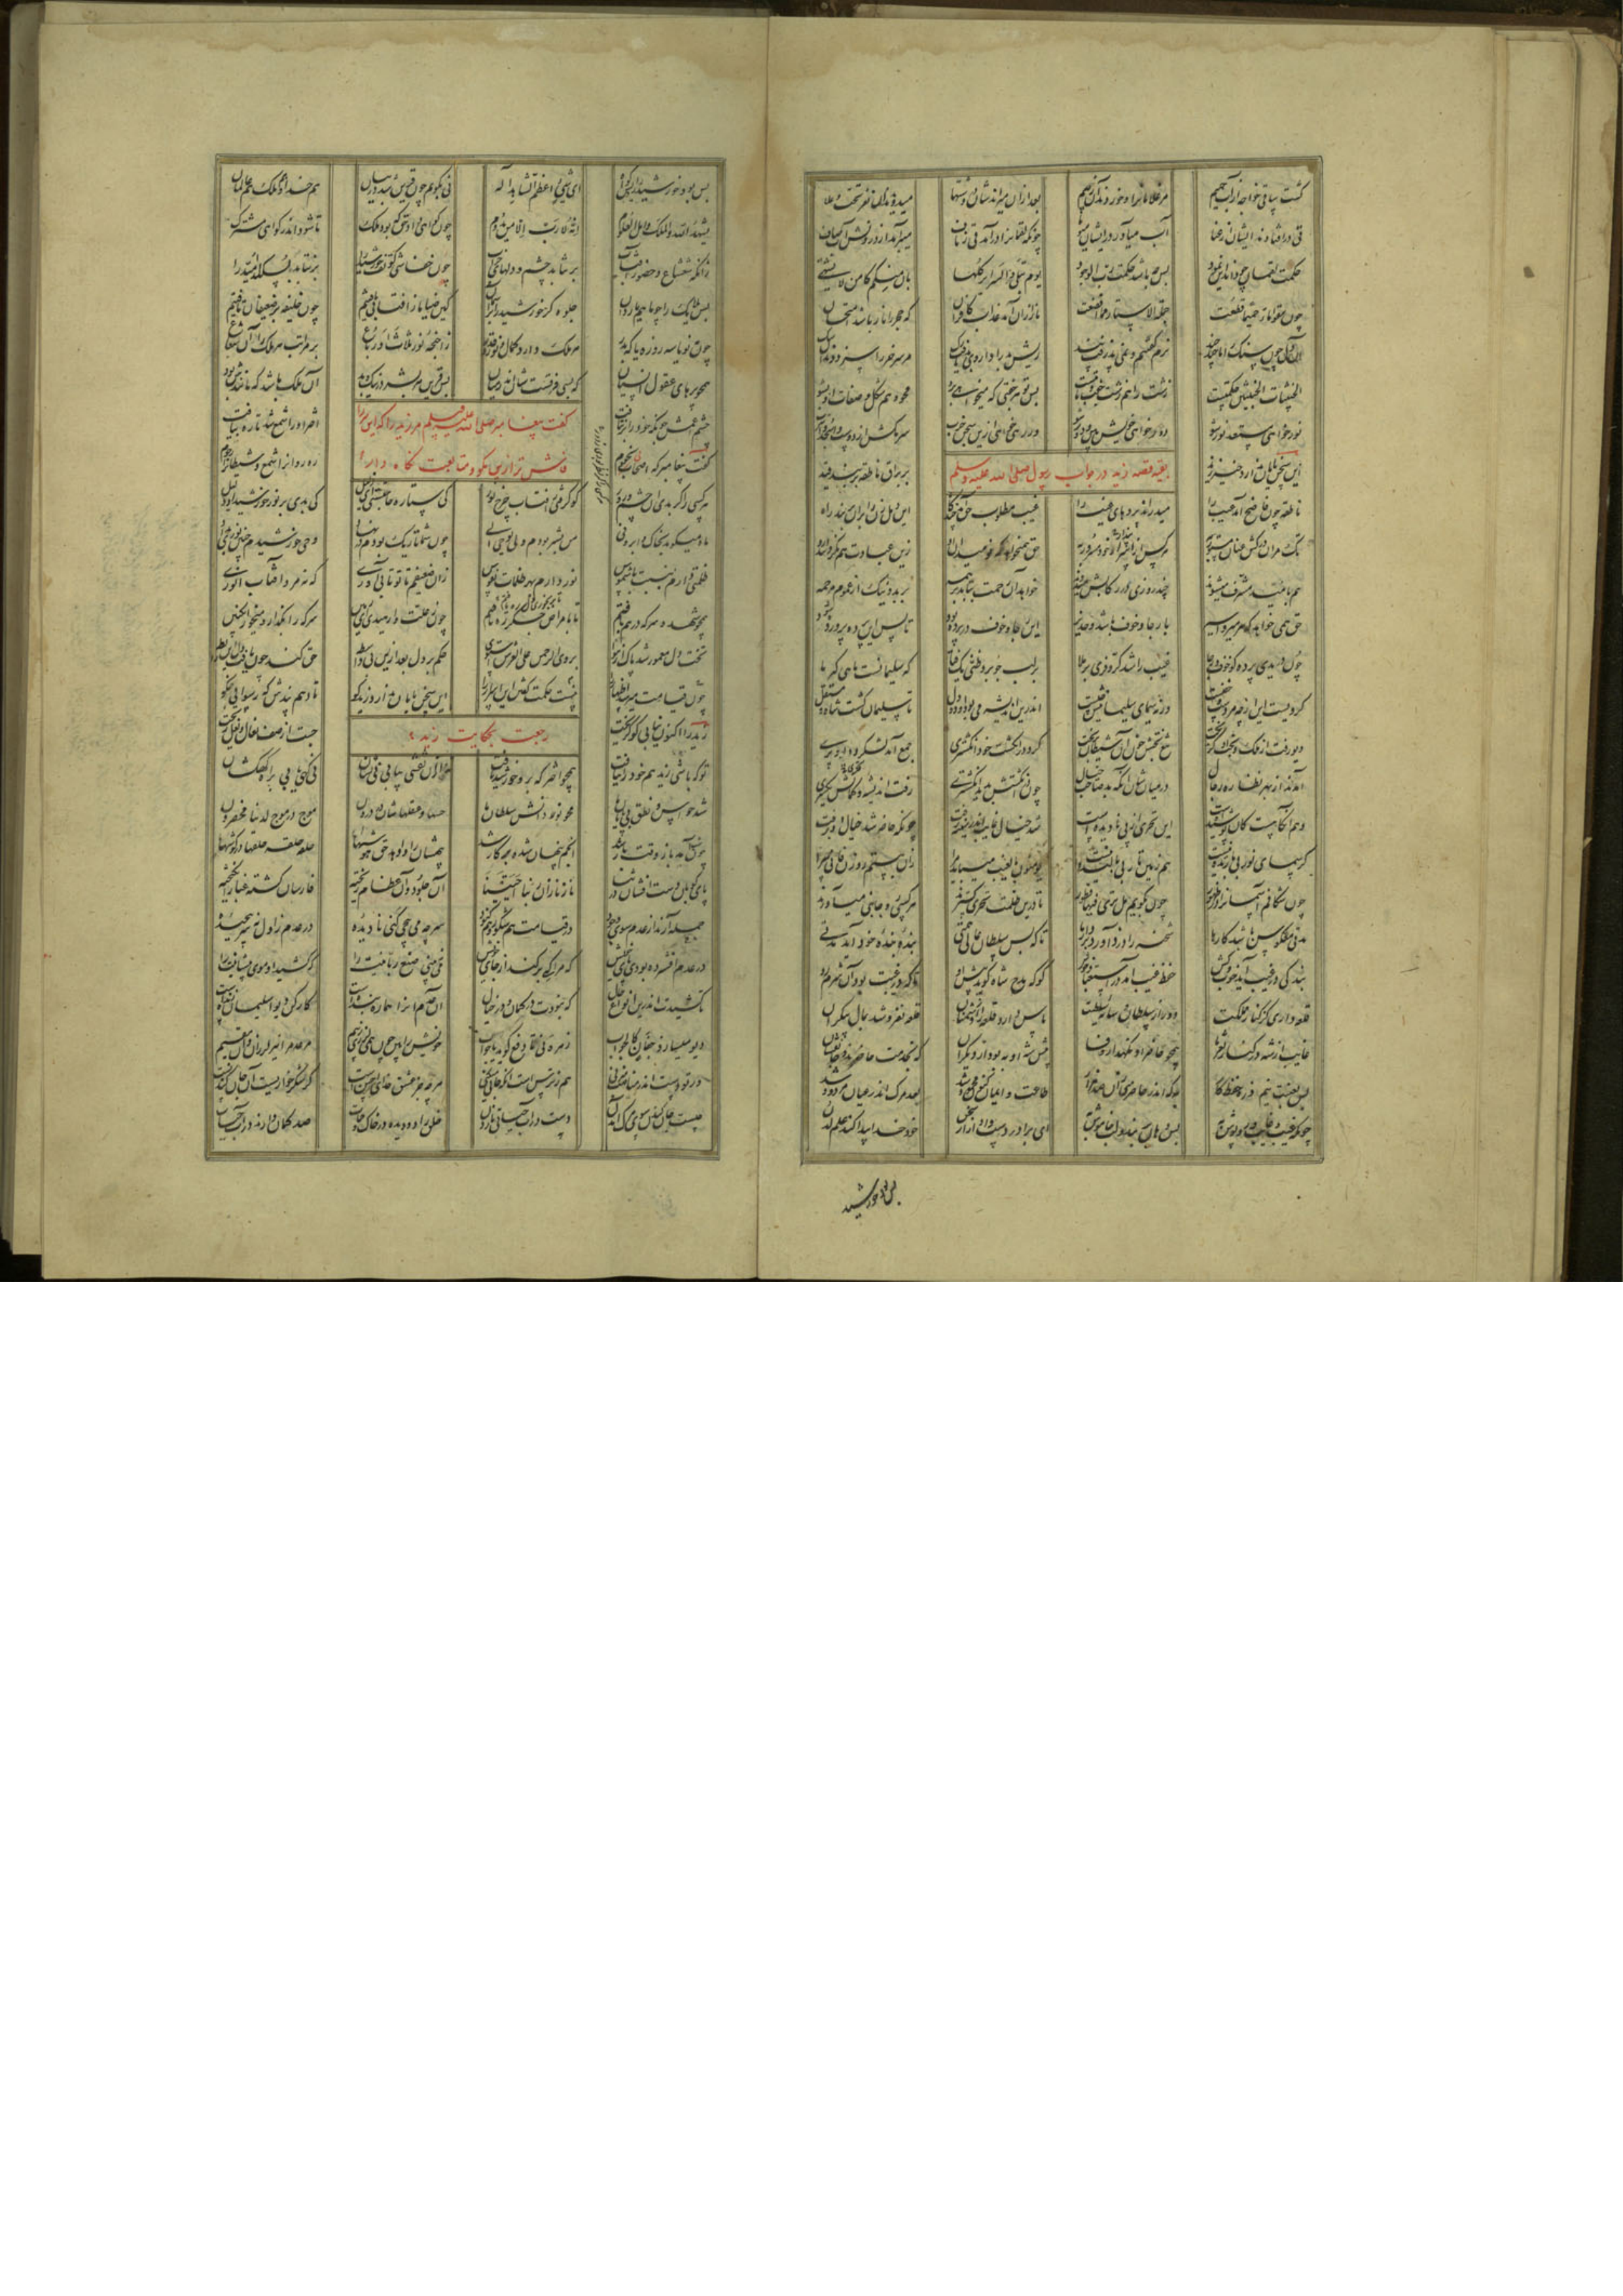 گشت ساقی خواجه از آب حمیم مر غلامانرا و خوردند آن ز بیم بعد ازان میراندشان در دشتها میدویدند آن نفر تحت و علا
قی در افتادند ایشان از عنا آب می آورد زیشان میوها چونکه لقمانرا در آمد قی ز ناف می برآمد از درونش آب صاف
حکمت لقمان چو داند این نمود پس چه باشد حکمت رب الوجود یوم تبلی السرایر کلها بان منکم کامن لا یشتهی
چون سقوا ماء حمیما قطعت جملة الاستار مما افضعت نار ازان آمد عذاب کافران که حجر را نار باشد امتحان
آن دل چون سنگ را ما چند چند نرم گفتیم و نمی پذرفت پند ریش بد را داروی بد یافت رگ مر سر خر را سزد دندان سگ
الخبیثات الخبیثین حکمتست زشت را هم زشت جفت و بابتست پس تو هر جفتی که میخواهی برو محو و هم شکل و صفات او بشو
نور خواهی مستعد نور شو دور خواهی خویش بین و دور شو ور رهی خواهی ازین سجن خرب سر مکش از دوست و اسجد و اقترب
بقیه قصه زید در جواب رسول صلی الله علیه وسلم
این سخن پایان ندارد خیز زید بر براق ناطقه بربند قید
ناطقه چون فاضح آمد عیب را میدراند پردهای غیب را غیب مطلوب حق آمد چندگاه این دهل زن را بران بربند راه
تک مران درکش عنان مستور به هر کس از پندار خود مسرور به حق همیخواهد که نومیدان او زین عبادت هم نگردانند رو
هم بامید مشرف میشوند چند روزی در رکابش میدوند خواهد آن رحمت بتابد بر همه بر بد و نیک از عموم مرحمه
حق همی خواهد که هر میر و اسیر با رجا و خوف باشند و حذیر این رجا و خوف در پرده بود تا پس این پرده پرورده شود
چون دریدی پرده کو خوف و رجا غیب را شد کر و فری بر ملا بر لب جو برد ظنی یک فتا که سلیمانست ماهی گیر ما
گر ویست این از چه فردست و خفیست ورنه سیمای سلیمانیش چیست اندرین اندیشه می بود او دو دل تا سلیمان گشت شاه و مستقل
دیو رفت از ملک و تخت او گریخت تیغ بختش خون آن شیطان بریخت کرد در انگشت خود انگشتری جمع آمد لشکر دیو و پری
آمدند از بهر نظاره رجال در میان شان آنکه بد صاحب خیال چون در انگشتش بدید انگشتری رفت اندیشه و گمانش یکسری
وهم آنگاهست کان پوشیده است این تحری از پی نادیده است شد خیال غایب اندر سینه زفت چونکه حاضر شد خیال او برفت
گر سمای نور بی باریده نیست هم زمین تار بی بالیده نیست یومنون بالغیب میباید مرا زان ببستم روزن فانی سرا
چون شکافم آسمانرا در ظهور چون بگویم هل تری فیها فطور تا درین ظلمت تحری گسترند هر کسی رو جانبی می آورند
مدتی معکوس باشد کارها شحنه را دزد آورد بر دارها تا که بس سلطان عالی همتی بنده بنده خود آید مدتی
بندگی در غیب آید خوب و کش حفظ غیب آمد در استعباد خوش کو که مدح شاه گوید پیش او تا که در غیبت بود او شرم رو
قلعه داری کز کنار مملکت دور از سلطان و سایه سلطنت پاس دارد قلعه را از دشمنان قلعه نفروشد بمال بیکران
غایب از شه در کنار ثغرها همچو حاضر او نگهدارد وفا پیش شه او به بود از دیگران که بخدمت حاضرند و جان فشان
پس بغیبت نیم ذره حفظ کار به که اندر حاضری زان صد هزار طاعت و ایمان کنون محمود شد بعد مرگ اندر عیان مردود شد
چونکه غیب و غایب و روپوش به پس دهان بر بند و لب خاموش به ای برادر دست وادار از سخن خود خدا پیدا کند علم لدن
بس بود خورشید
بس بود خورشید را رویش گواه ای شیء اعظم الشاهد اله نی بگویم چون قرین شد در بیان هم خدا و هم ملک هم عالمان
یشهد الله و الملک و اهل العلوم انه لا رب الا من یدوم چون گواهی داد حق که بود ملک تا شود اندر گواهی مشترک
زانکه شعشاع و حضور آفتاب بر نتابد چشم و دلهای خراب چون خفاشی کو تف خورشید را برنتابد بسکلد امید را
پس ملایک را چو ما هم یار دان جلوه گر خورشید را بر آسمان کین ضیا ما ز آفتابی یافتیم چون خلیفه بر ضعیفان تافتیم
چون مه نو یا سه روزه یا که بدر هر ملک دارد کمال و نور و قدر ز اجنحه نور ثلاث او رباع بر مراتب هر ملک را آن شعاع
همچو پرهای عقول انسیان که بسی فرقستشان اندر میان پس قرین هر بشر در نیک و بد آن ملک باشد که مانندش بود
چشم اعمش چونکه خور را بر نتافت اختر او را شمع شد تا ره بیافت
گفت پیغامبر صلی الله علیه وسلم مر زید را که این سر را
فاش تر ازین مگو و متابعت نگاه دار
گفت پیغامبر که اصحابی نجوم رهروانرا شمع و شیطانرا رجوم
هر کسی را گر بدی آن چشم و زور کو گرفتی ز آفتاب چرخ نور کی ستاره حاجتستی ای ذلیل کی بدی بر نور خورشید او دلیل
ماه میگوید بخاک و ابر و فی من بشر بودم ولی یوحی الی چون شما تاریک بودم در نهاد وحی خورشیدم چنین نوری بداد
ظلمتی دارم بنسبت با شموس نور دارم بهر ظلمات نفوس زان ضعیفم تا تو تابی آوری که نه مرد آفتاب انوری
همچو شهد و سرکه در هم بافتم چون ز علت وارهیدی ای رهین سرکه را بگذار و میخور انگبین
تخت دل معمور شد پاک از هوا بر وی الرحمن علی العرش استوی حکم بر دل بعد ازین بی واسطه حق کند چون یافت دل این رابطه
چون قیامت میرسد اظهار را نیست حکمت گفتن این اسرار را این سخن پایان ندارد زید کو تا دهم پندش که رسوایی مجو
رجعت بحکایت زید
زید را اکنون نیابی کو گریخت جست از صف نعال و نعل ریخت
تو که باشی زید هم خود را نیافت همچو اختر که برو خورشید تافت نی ازو نقشی بیابی نی نشان نی کهی یابی براه کهکشان
شد حواس و نطق بی پایان ما محو نور دانش سلطان ما حسها و عقلهاشان در درون موج در موج لدینا محضرون
چون شب آمد باز وقت بار شد انجم پنهان شده بر کار شد بیهشان را وادهد حق هوشها حلقه حلقه حلقها در گوشها
پای کوبان دست افشان در ثنا ناز نازان ربنا احییتنا آن جلود و آن عظام ریخته فارسان گشته غبار انگیخته
حمله آرند از عدم سوی وجود در قیامت هم شکور و هم کنود سر چه می پیچی کنی نادیده در عدم ز اول نه سر پیچیده
در عدم افشرده بودی پای خویش که مرا که بر کند از جای خویش می نبینی صنع ربانیت را که کشید او موی پیشانیت را
تا کشیدت اندرین انواع حال که نبودت در گمان و در خیال آن عدم او را هماره بنده است کار کن دیوا سلیمان زنده است
دیو میسازد جفان کالجواب زهره نی تا دفع گوید یا جواب خویش را بین چون همی لرزی ز بیم مر عدم را نیز لرزان دان مقیم
ور تو دست اندر مناصب میزنی هم ز ترس است آنکه جانی میکنی هر چه جز عشق خدای احسن است گر شکر خواریست آن جان کندن است
چیست جان کندن سوی مرگ آمدن دست در آب حیاتی نازدن خلق را دو دیده در خاک و ممات صد گمان دارند در آب حیات